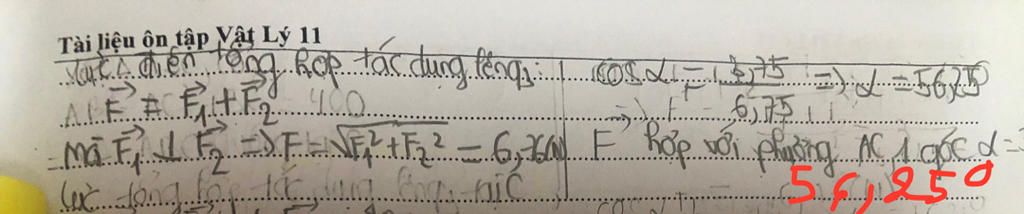 Tài liệu ôn tập Vật Lý 11
Lực điện tổng hợp tác dụng lên q₃:
F⃗ = F⃗₁ + F⃗₂
mà F⃗₁ ⊥ F⃗₂ => F = √F₁² + F₂² = 6,76(N)
lực tổng hợp tác dụng lên
cos α = 3,75 / 6,75 => α = 56,25⁰
=> F⃗ hợp với phương AC 1 góc α =
56,25⁰